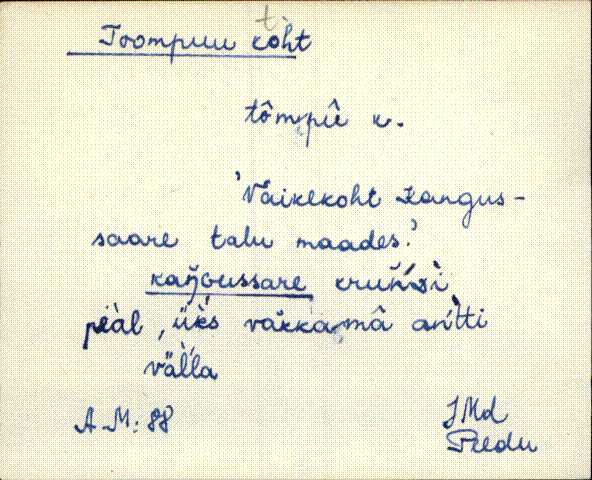 t
Toompuu koht
tômpû k.
'Väikekoht Kangus-
saare talu maades.'
kaŋGussare kruńsi
pεàl, ük̀s väkkamâ añtti
väl'la
A.M: 88
J Md